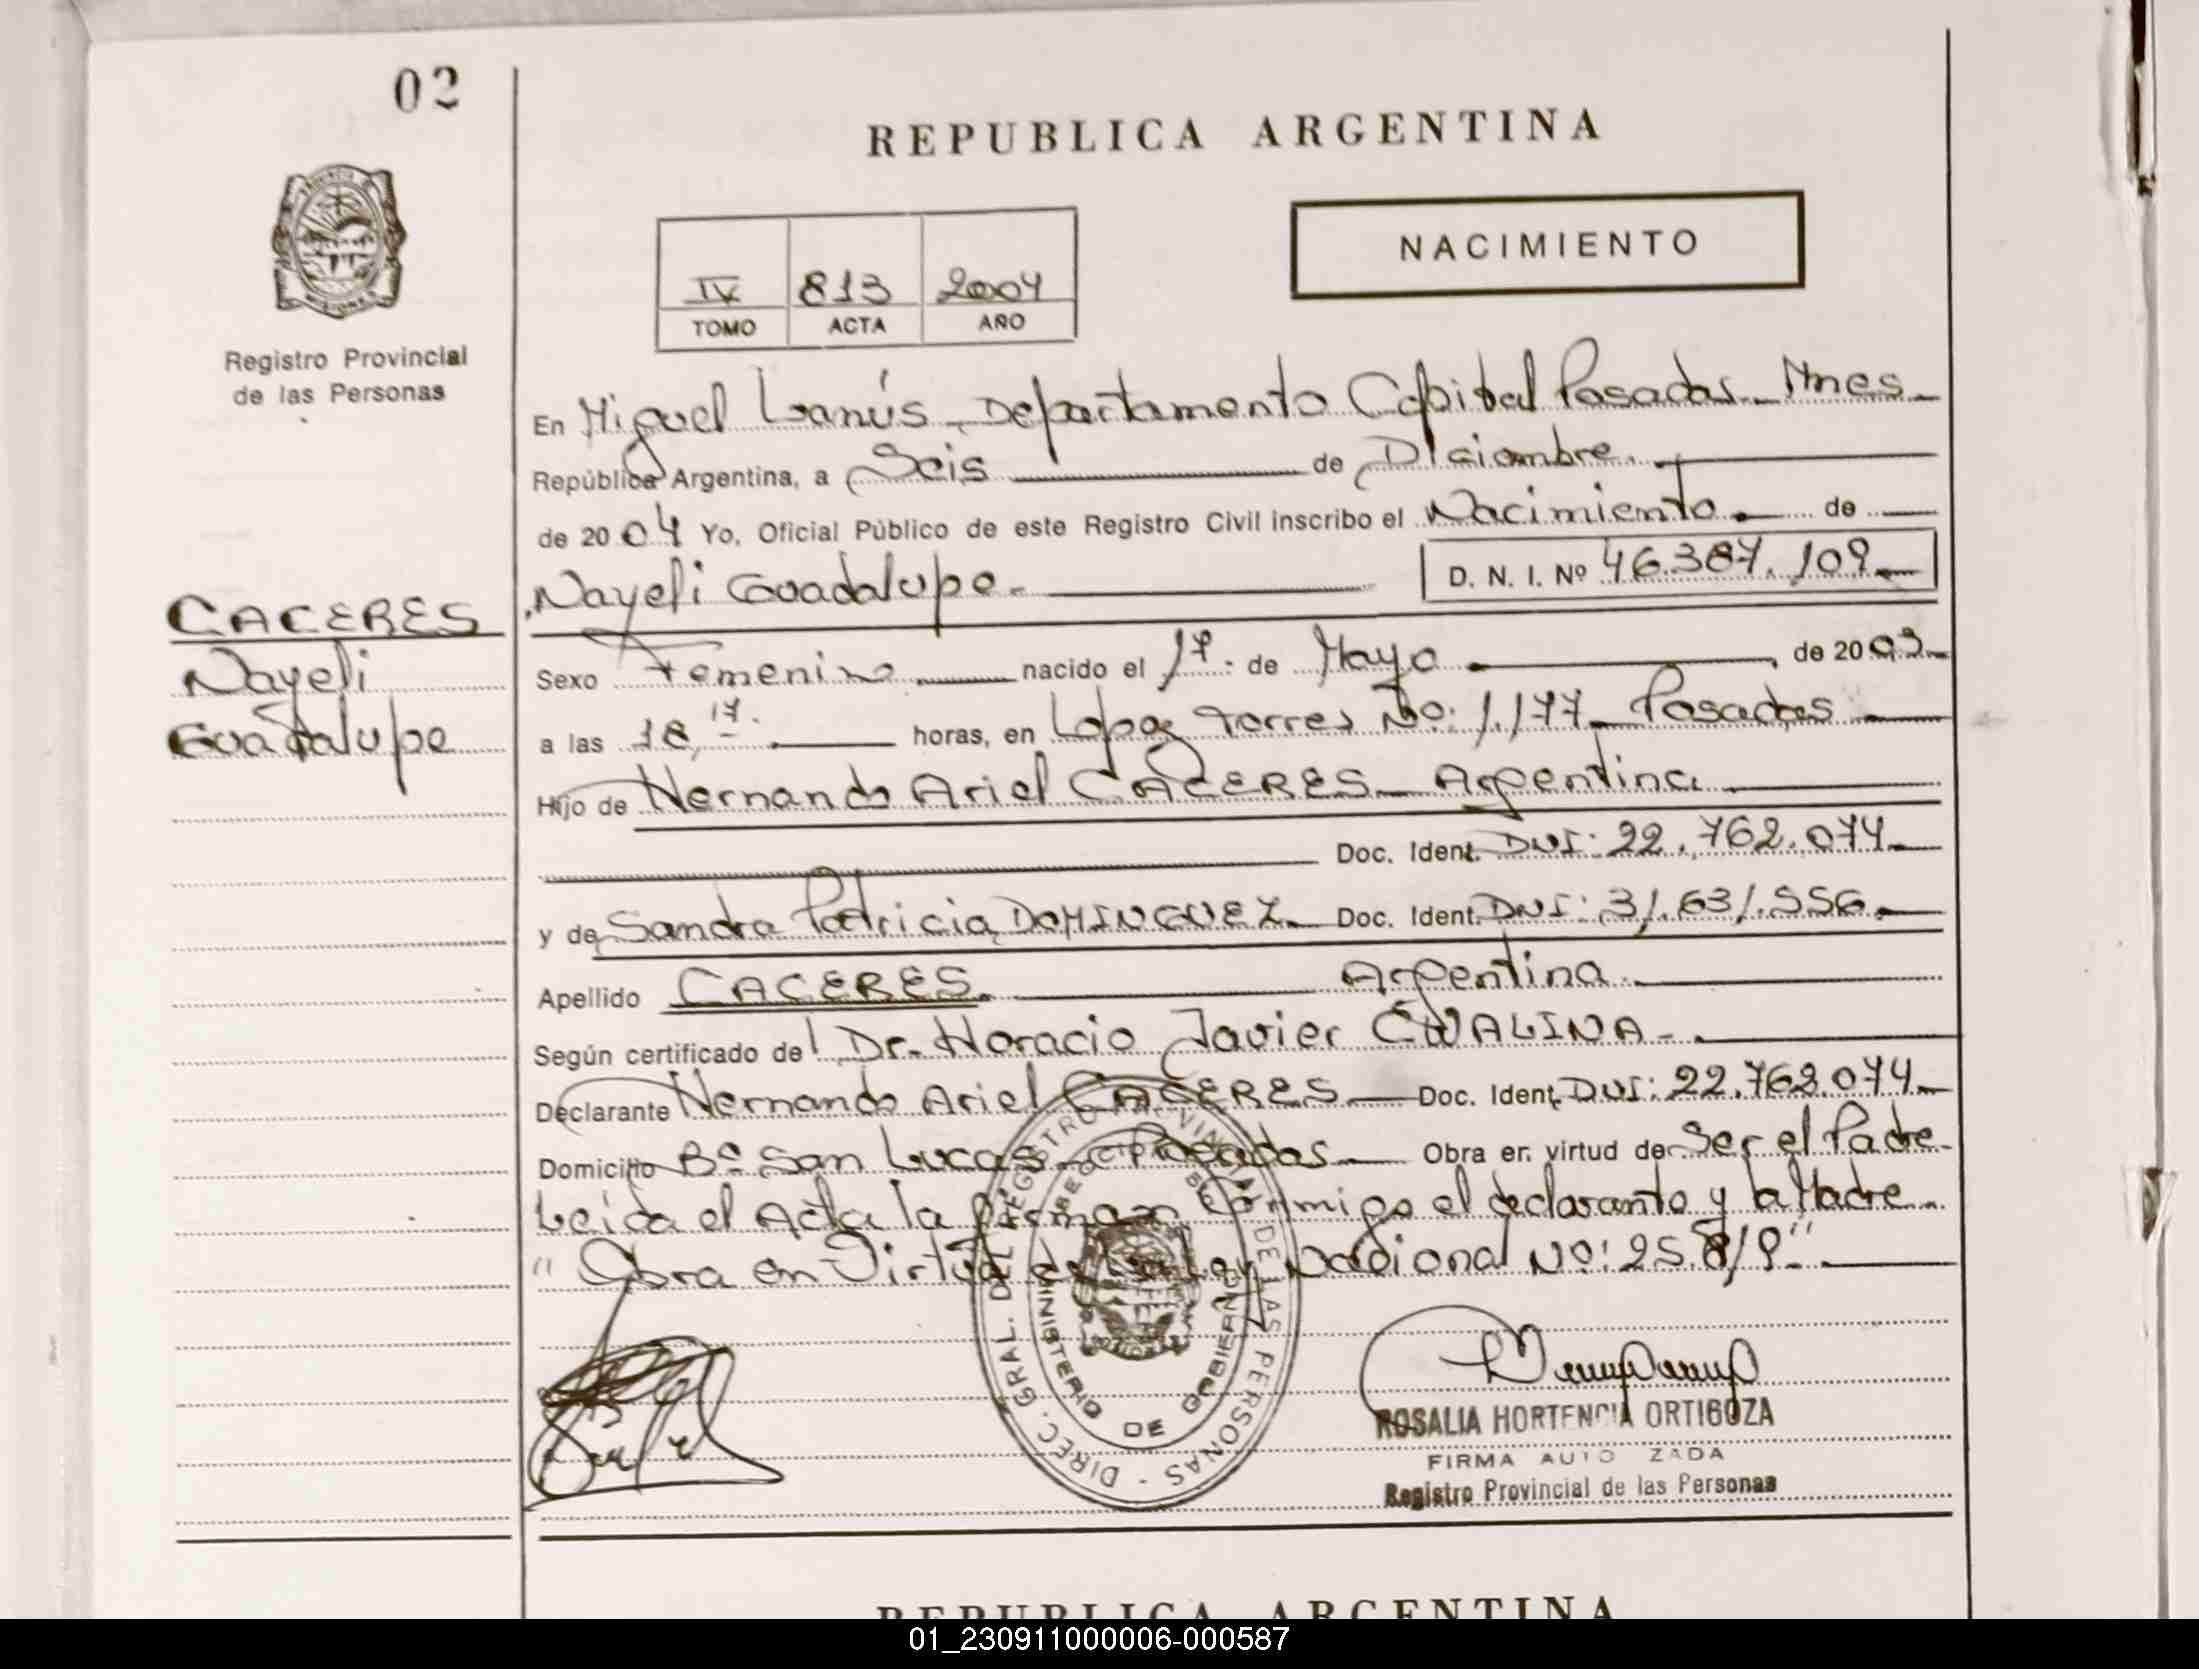 02
REPUBLICA ARGENTINA
NACIMIENTO
IV 813 2004
TOMO ACTA AÑO
Registro Provincial
de las Personas
En Miguel Lanús - Departamento Capital Posadas - Mnes -
República Argentina, a Seis de Diciembre.
de 2004 Yo, Oficial Público de este Registro Civil inscribo el Nacimiento de
Nayeli Guadalupe. D. N. I. Nº 46.387.109
CACERES
Nayeli
Guadalupe
Sexo Femenino nacido el 17. de Mayo, de 2003
a las 18,17. horas, en Lopez Torres No: 1.177 - Posadas
Hijo de Hernando Ariel CACERES - Argentina
Doc. Ident. DNI: 22.762.074
y de Sandra Patricia DOMINGUEZ - Doc. Ident. DNI: 31.631.556
Apellido CACERES. Argentina.
Según certificado del Dr. Horacio Javier CWALINA -
Declarante Hernando Ariel CACERES Doc. Ident. DNI: 22.762.074
Domicilio Bº San Lucas - Posadas Obra en virtud de Ser el Padre
Leída el Acta la firman conmigo el declarante y la Madre.
"Obra en Virtud de la Ley Nacional No: 25.819"
DIREC. GRAL. DEL REGISTRO PROVINCIAL DE LAS PERSONAS
MINISTERIO DE GOBIERNO
ROSALIA HORTENCIA ORTIGOZA
FIRMA AUTO ZADA
Registro Provincial de las Personas
REPUBLICA ARGENTINA
01_230911000006-000587